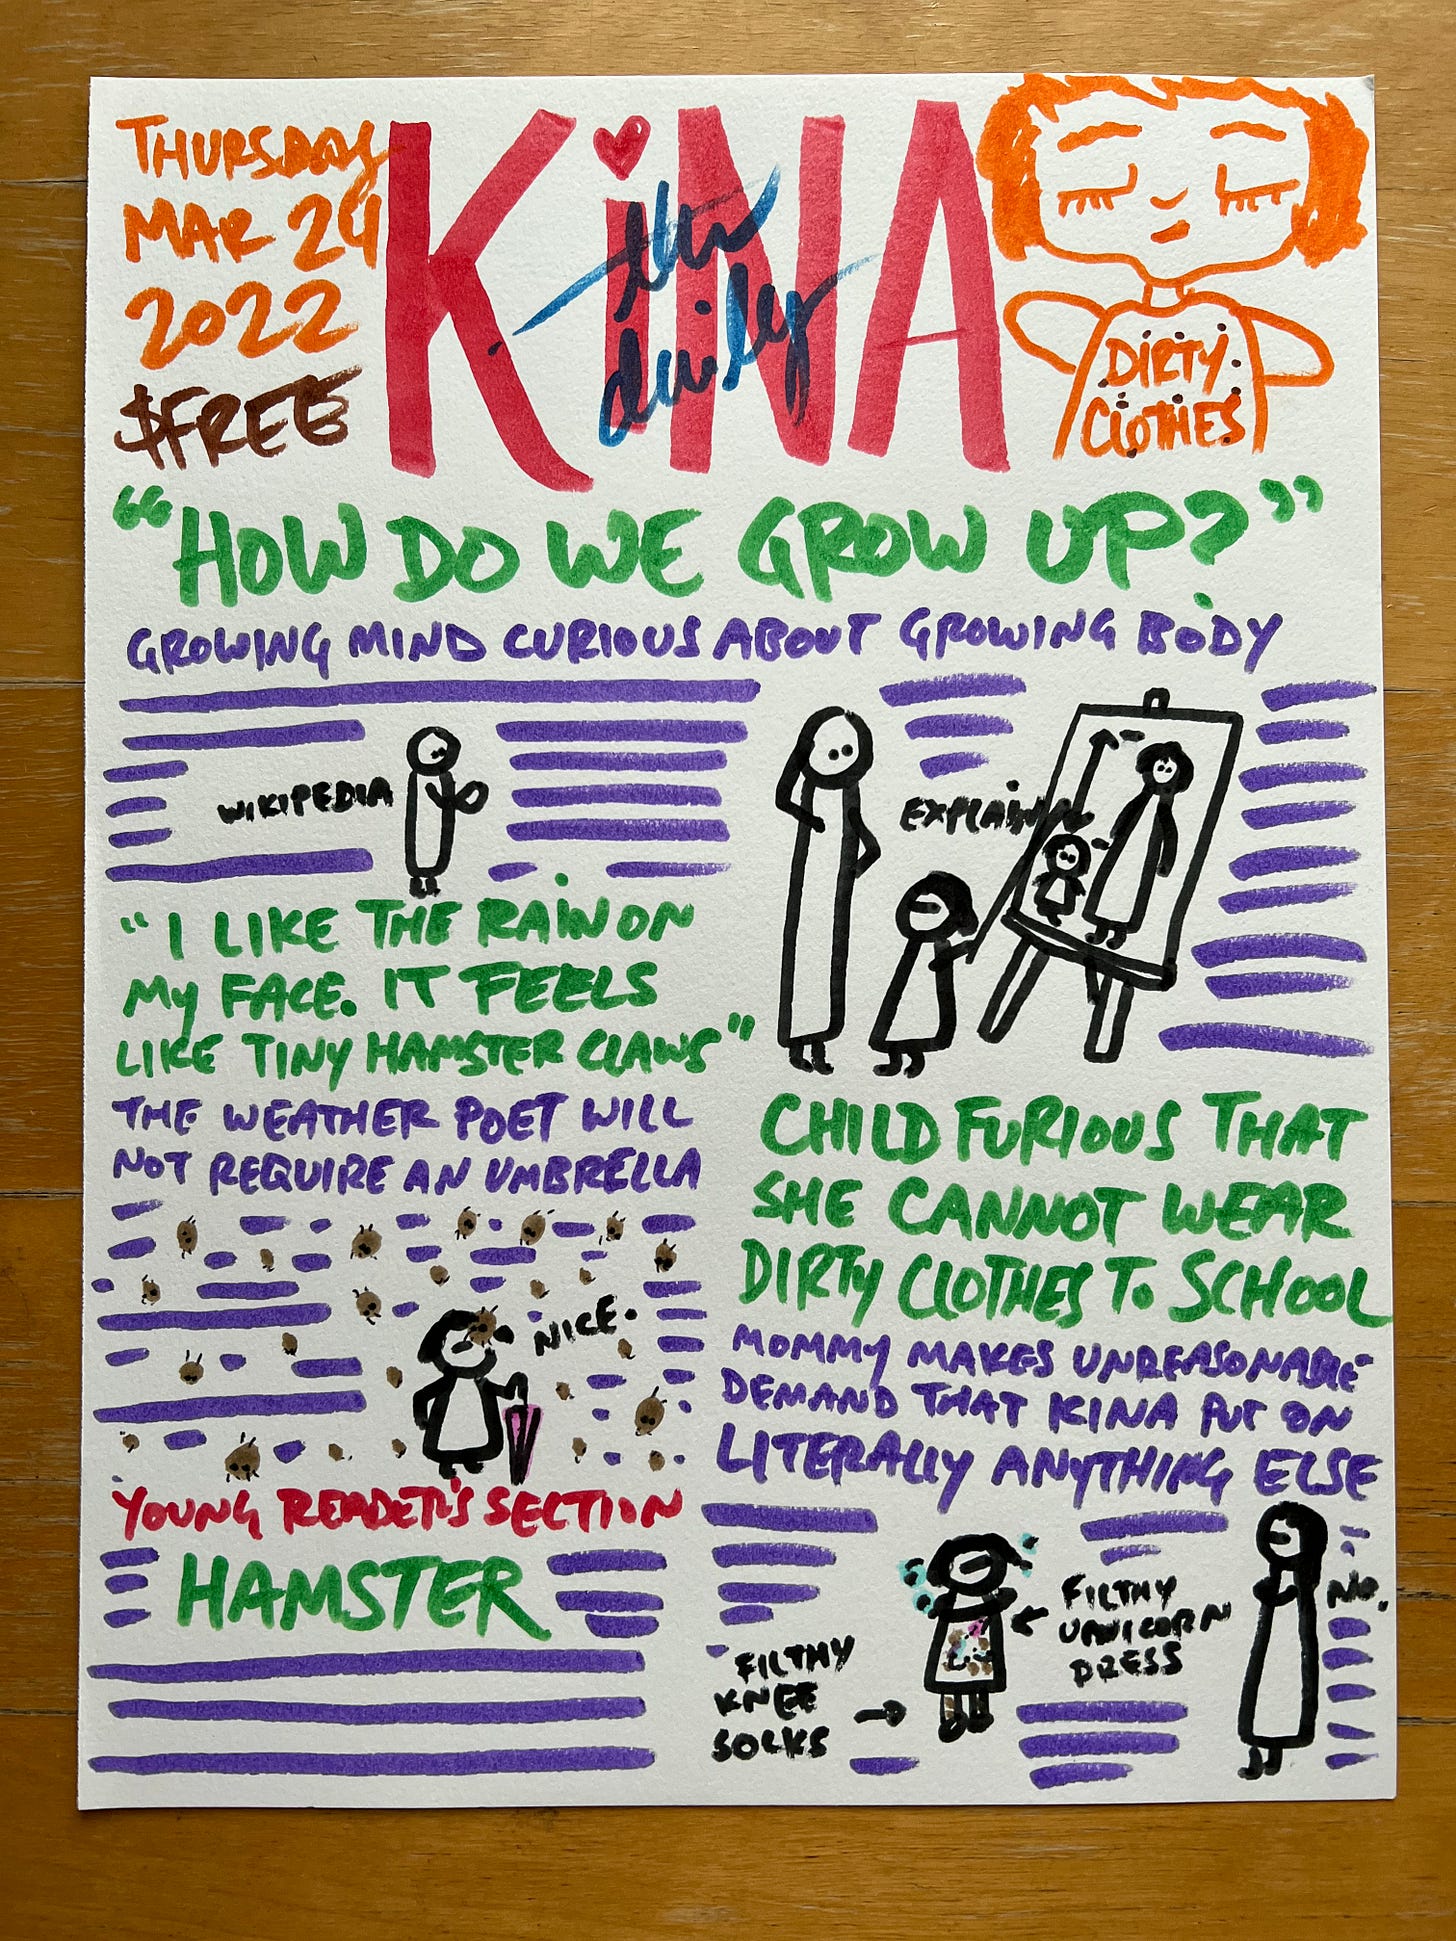 THURSDAY
MAR 24
2022
$FREE
KiNA
the
daily
DIRTY
CLOTHES
"HOW DO WE GROW UP?"
GROWING MIND CURIOUS ABOUT GROWING BODY
WIKIPEDIA
EXPLAINING
"I LIKE THE RAIN ON
MY FACE. IT FEELS
LIKE TINY HAMSTER CLAWS"
THE WEATHER POET WILL
NOT REQUIRE AN UMBRELLA
NICE.
YOUNG READER'S SECTION
HAMSTER
CHILD FURIOUS THAT
SHE CANNOT WEAR
DIRTY CLOTHES TO SCHOOL
MOMMY MAKES UNREASONABLE
DEMAND THAT KINA PUT ON
LITERALLY ANYTHING ELSE
FILTHY
KNEE
SOCKS
FILTHY
UNICORN
DRESS
NO.